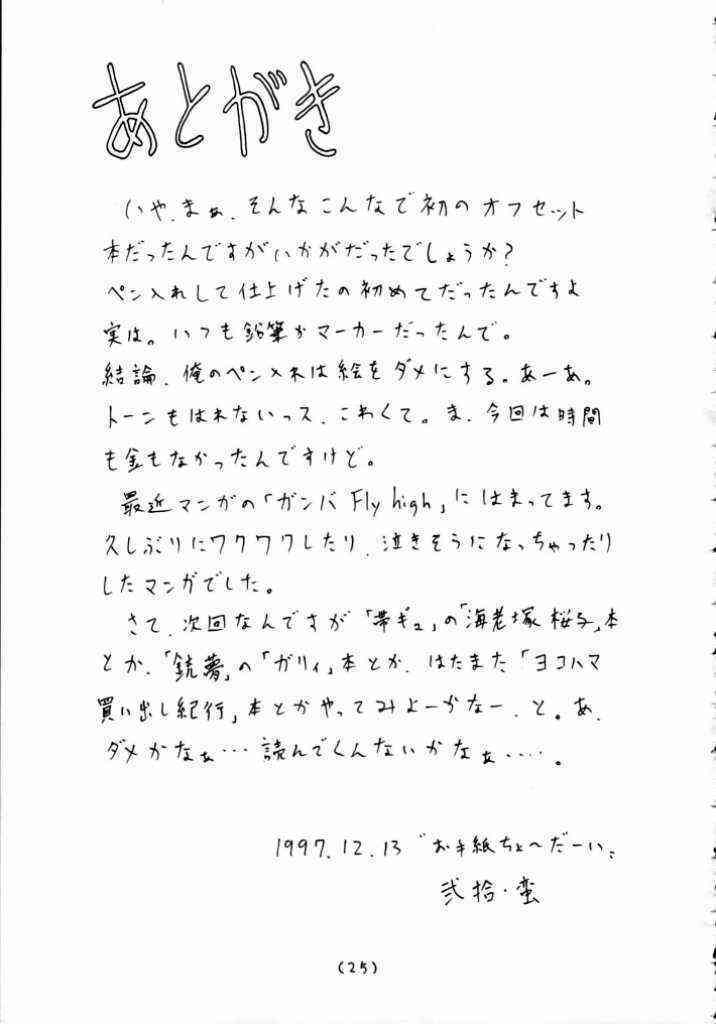 あとがき
いや、まぁ、そんなこんなで初のオフセット
本だったんですがいかがだったでしょうか?
ペン入れして仕上げたの初めてだったんですよ
実は。いつも鉛筆かマーカーだったんで。
結論、俺のペン入れは絵をダメにする。あーあ。
トーンもはれないっス、こわくて。ま、今回は時間
も金もなかったんですけど。
最近マンガの「ガンバ Fly high」にはまってます。
久しぶりにワクワクしたり、泣きそうになっちゃったり
したマンガでした。
さて、次回なんですが「帯ギュ」の「海老塚桜子」本
とか、「銃夢」の「ガリィ」本とか、はたまた「ヨコハマ
買い出し紀行」本とかやってみよーかなー、と。あ、
ダメかなぁ…読んでくんないかなぁ‥‥。
1997.12.13 〝お手紙ちょ〜だーい〟
弐拾・蛮
(25)